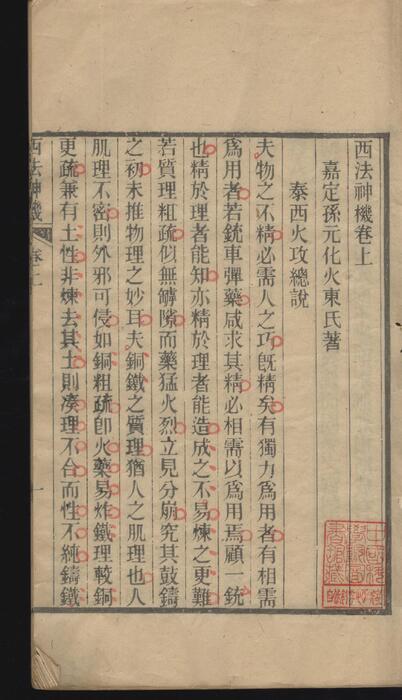 西法神機卷上
嘉定孫元化火東氏著
泰西火攻總說
夫物之不精必需人之巧旣精矣有獨力爲用者有相需
爲用者若銃車彈藥咸求其精必相需以爲用焉顧一銃
也精於理者能知亦精於理者能造成之不易煉之更難
若質理粗疏似無罅隙而藥猛火烈立見分崩究其鼓鑄
之初未推物理之妙耳夫銅鐵之質理猶人之肌理也人
肌理不密則外邪可侵如銅粗疏卽火藥易炸鐵理較銅
更疏兼有土性非煉去其土則凑理不合而性不純鑄鐵
西法神機
卷上
一